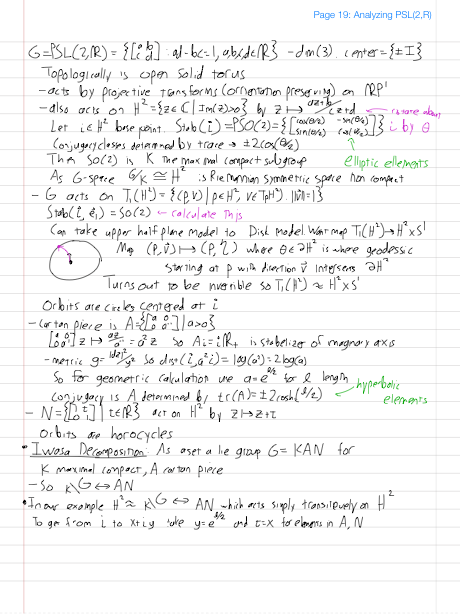 Page 19: Analyzing PSL(2,R)
G=PSL(2,ℝ) = {[a b; c d] : ad-bc=1, a,b,c,d∈ℝ} -dim(3). center={±I}
Topologically is open solid torus
-acts by projective transforms (orientation preserving) on ℝP¹
-also acts on H²={z∈ℂ | Im(z)>0} by z ↦ az+b/cz+d
Let i∈H² base point. Stab(i)=PSO(2)={[cos(θ/2) -sin(θ/2); sin(θ/2) cos(θ/2)]} rotate about i by θ
Conjugacy classes determined by trace → ±2cos(θ/2)
Then SO(2) is K the maximal compact subgroup
elliptic ellements
As G-space G/K ≅ H² is Riemannian symmetric space non compact
- G acts on T₁(H²)={(p,v) | p∈H², v∈TpH², ||v||=1}
Stab(i, e₁) = SO(2) ← calculate this
Can take upper half plane model to Disk model. Want map T₁(H²)→H²×S¹
Map (p,v) ↦ (p,η) where θ∈∂H² is where geodessic
starting at p with direction v intersens ∂H²
Turns out to be invertible so T₁(H²) ≈ H²×S¹
Orbits are circles centered at i
- Cartan piece is A={[a 0; 0 a⁻¹] | a>0}
[a 0; 0 a⁻¹] z ↦ az/a⁻¹ = a²z so Ai=iℝ₊ is stabelizer of imaginary axis
-metric g=|dz|²/y² so dist(i,a²i)=log(a²)=2log(a)
So for geometric calculation use a=e^{ℓ/2} for ℓ length
Conjugacy is A determined by tr(A)=±2cosh(ℓ/2)
hyperbolic elements
- N={[1 τ; 0 1] | τ∈ℝ} act on H² by z↦z+τ
Orbits are horocycles
• Iwasa Decomposition: As a set a lie group G=KAN for
K maximal compact, A cartan piece
-So K\G ↔ AN
• In our example H²≈ K\G ↔ AN which acts simply transitively on H²
To get from i to x+iy take y=e^{ℓ/2} and τ=x for elements in A, N